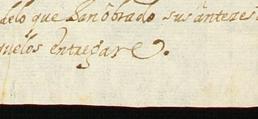 delo que han obrado sus antezes
quelos entregare.